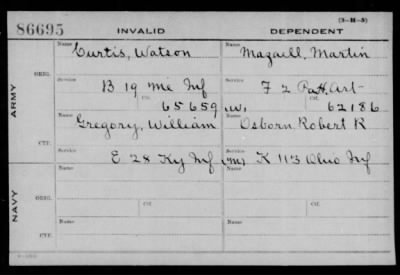 (3-H-5)
86695 INVALID DEPENDENT
Name Curtis, Watson Name Mazaell, Martin
ORIG.
Service B 19 Me Inf Service F 2 Pa H. Art
ARMY
Ctf. 65659 W. Ctf. 62186
Name Gregory, William Name Osborn, Robert R
CTF.
Service E 28 Ky Inf (M) Service K 113 Ohio Inf
Name Name
NAVY
ORIG.
Service Ctf. Service Ctf.
Name Name
CTF.
Service Service